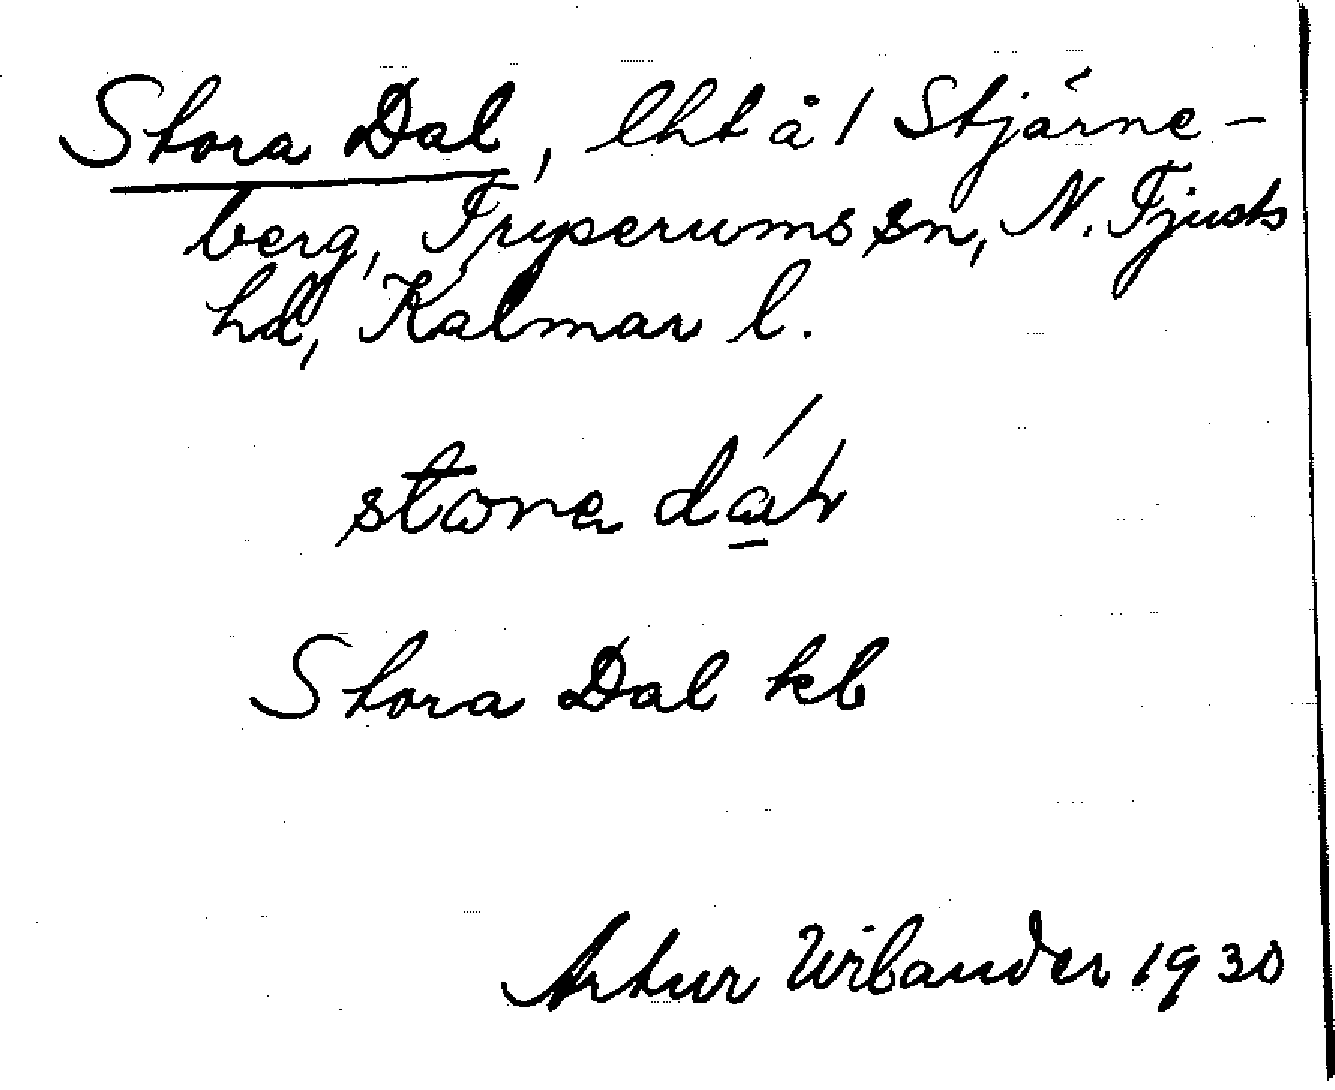 Stora Dal, lht å 1 Stjärne-
berg, Tryserums sn, N. Tjusts
hd, Kalmar l.
Stora Dal kb
Artur Wilander 1930